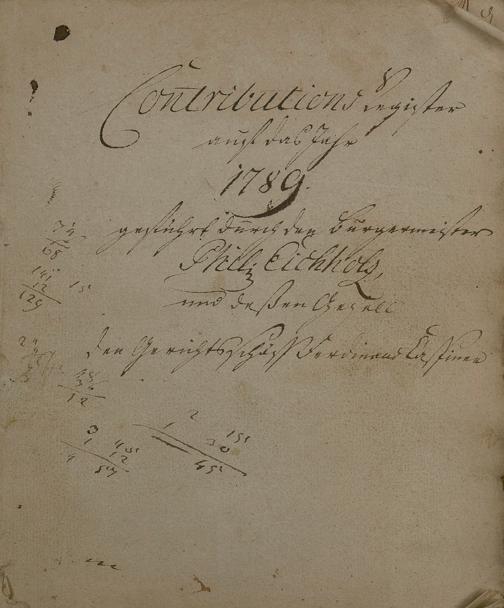 Contributions Register
auf das Jahr
1789.
geführt durch den Burgermeister
Phill: Eichholz,
und deßen Gesell
den Gerichtsschöff Ferdinand
74
68
141 15
12
129
12
3 45
1 12
4 57
1 2 15
30
45